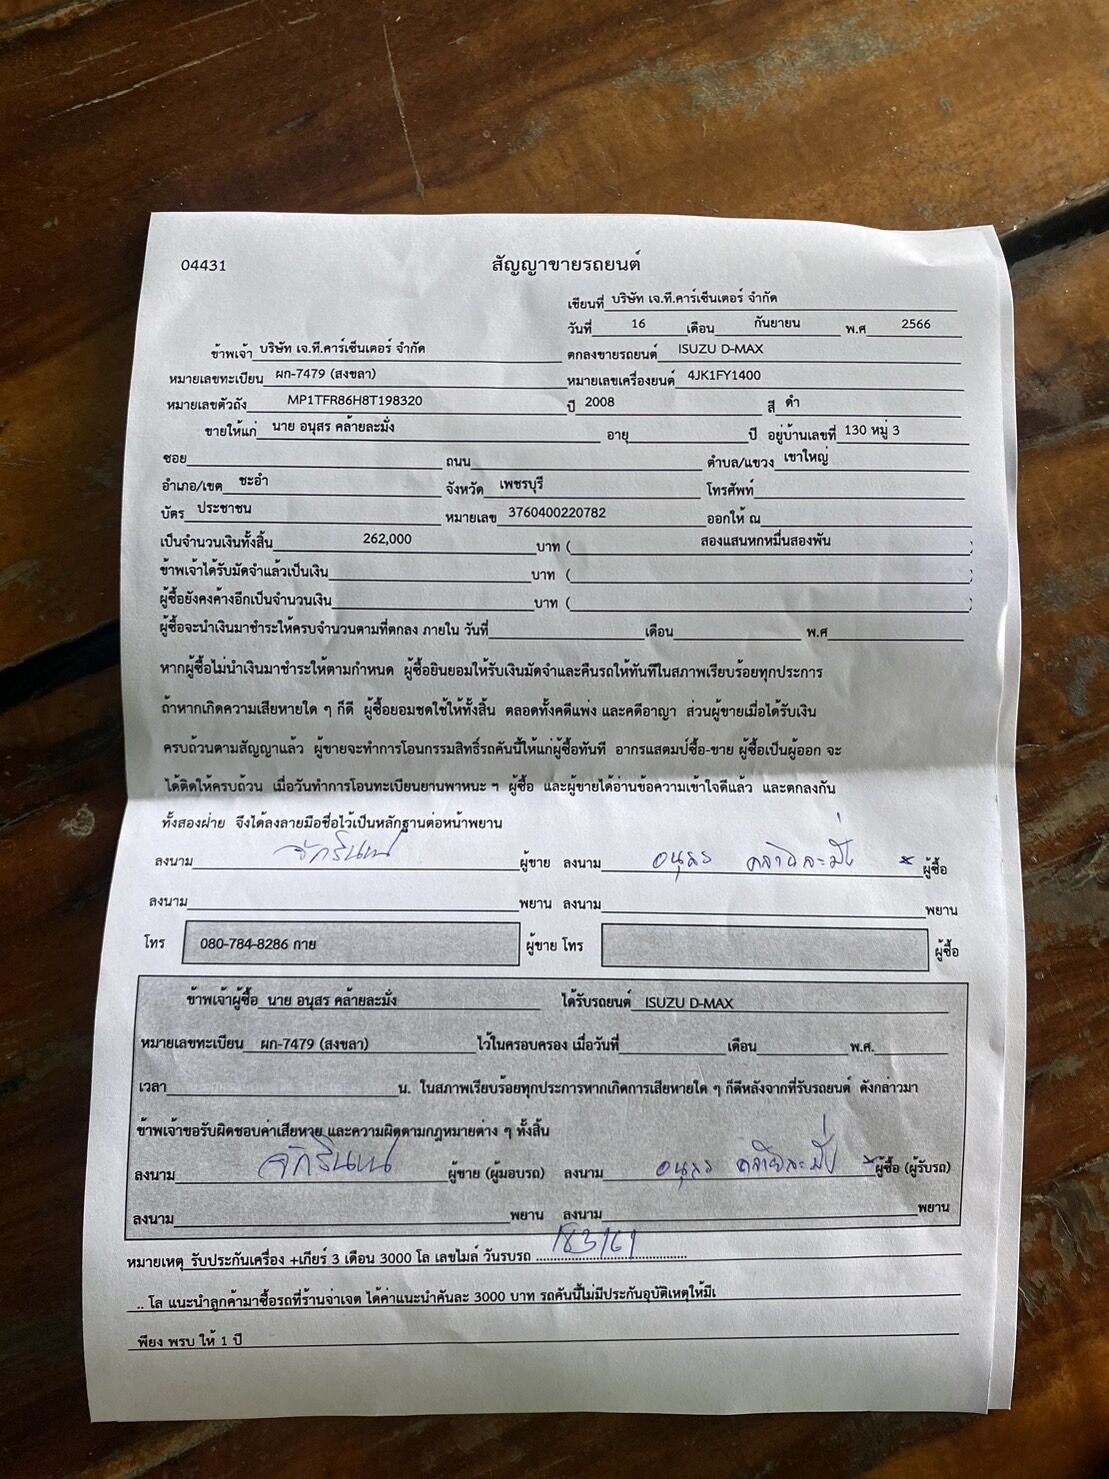 04431
สัญญาขายรถยนต์
เขียนที่ บริษัท เจ.ที.คาร์เซ็นเตอร์ จำกัด
วันที่ 16 เดือน กันยายน พ.ศ 2566
ข้าพเจ้า บริษัท เจ.ที.คาร์เซ็นเตอร์ จำกัด ตกลงขายรถยนต์ ISUZU D-MAX
หมายเลขทะเบียน ผก-7479 (สงขลา) หมายเลขเครื่องยนต์ 4JK1FY1400
หมายเลขตัวถัง MP1TFR86H8T198320 ปี 2008 สี ดำ
ขายให้แก่ นาย อนุสร คล้ายละมั่ง อายุ ปี อยู่บ้านเลขที่ 130 หมู่ 3
ซอย ถนน ตำบล/แขวง เขาใหญ่
อำเภอ/เขต ชะอำ จังหวัด เพชรบุรี โทรศัพท์
บัตร ประชาชน หมายเลข 3760400220782 ออกให้ ณ
เป็นจำนวนเงินทั้งสิ้น 262,000 บาท ( สองแสนหกหมื่นสองพัน )
ข้าพเจ้าได้รับมัดจำแล้วเป็นเงิน บาท ( )
ผู้ซื้อยังคงค้างอีกเป็นจำนวนเงิน บาท ( )
ผู้ซื้อจะนำเงินมาชำระให้ครบจำนวนตามที่ตกลง ภายใน วันที่ เดือน พ.ศ
หากผู้ซื้อไม่นำเงินมาชำระให้ตามกำหนด ผู้ซื้อยินยอมให้รับเงินมัดจำและคืนรถให้ทันทีในสภาพเรียบร้อยทุกประการ
ถ้าหากเกิดความเสียหายใด ๆ ก็ดี ผู้ซื้อยอมชดใช้ให้ทั้งสิ้น ตลอดทั้งคดีแพ่ง และคดีอาญา ส่วนผู้ขายเมื่อได้รับเงิน
ครบถ้วนตามสัญญาแล้ว ผู้ขายจะทำการโอนกรรมสิทธิ์รถคันนี้ให้แก่ผู้ซื้อทันที อากรแสตมป์ซื้อ-ขาย ผู้ซื้อเป็นผู้ออก จะ
ได้ติดให้ครบถ้วน เมื่อวันทำการโอนทะเบียนยานพาหนะ ฯ ผู้ซื้อ และผู้ขายได้อ่านข้อความเข้าใจดีแล้ว และตกลงกัน
ทั้งสองฝ่าย จึงได้ลงลายมือชื่อไว้เป็นหลักฐานต่อหน้าพยาน
ลงนาม จักรินทน์ ผู้ขาย ลงนาม อนุสร คล้ายละมั่ง × ผู้ซื้อ
ลงนาม พยาน ลงนาม พยาน
โทร 080-784-8286 กาย ผู้ขาย โทร ผู้ซื้อ
ข้าพเจ้าผู้ซื้อ นาย อนุสร คล้ายละมั่ง ได้รับรถยนต์ ISUZU D-MAX
หมายเลขทะเบียน ผก-7479 (สงขลา) ไว้ในครอบครอง เมื่อวันที่ เดือน พ.ศ.
เวลา น. ในสภาพเรียบร้อยทุกประการหากเกิดการเสียหายใด ๆ ก็ดีหลังจากที่รับรถยนต์ ดังกล่าวมา
ข้าพเจ้าขอรับผิดชอบค่าเสียหาย และความผิดตามกฎหมายต่าง ๆ ทั้งสิ้น
ลงนาม จักรินทน์ ผู้ขาย (ผู้มอบรถ) ลงนาม อนุสร คล้ายละมั่ง × ผู้ซื้อ (ผู้รับรถ)
ลงนาม พยาน ลงนาม พยาน
หมายเหตุ รับประกันเครื่อง +เกียร์ 3 เดือน 3000 โล เลขไมล์ วันรบรถ 183161
.. โล แนะนำลูกค้ามาซื้อรถที่ร้านจ่าเจต ได้ค่าแนะนำคันละ 3000 บาท รถคันนี้ไม่มีประกันอุบัติเหตุให้มีเ
พียง พรบ ให้ 1 ปี